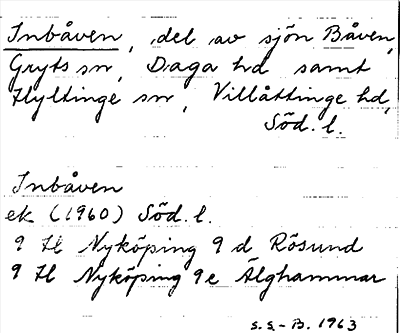 Inbåven, del av sjön Båven,
Gryts sn, Daga hd samt
Hyltinge sn, Villåttinge hd,
Söd. l.
Inbåven
ek (1960) Söd. l.
9 H Nyköping 9 d Rösund
9 H Nyköping 9 e Älghammar
S.S-B. 1963